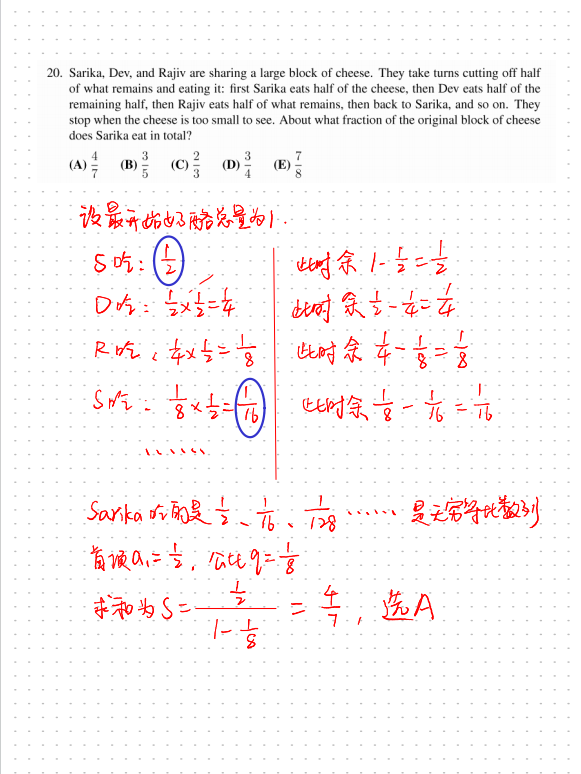 20. Sarika, Dev, and Rajiv are sharing a large block of cheese. They take turns cutting off half
of what remains and eating it: first Sarika eats half of the cheese, then Dev eats half of the
remaining half, then Rajiv eats half of what remains, then back to Sarika, and so on. They
stop when the cheese is too small to see. About what fraction of the original block of cheese
does Sarika eat in total?
(A) 4/7 (B) 3/5 (C) 2/3 (D) 3/4 (E) 7/8
设最开始奶酪总量为1.
S吃: 1/2 此时余 1-1/2=1/2
D吃: 1/2×1/2=1/4 此时余 1/2-1/4=1/4
R吃: 1/4×1/2=1/8 此时余 1/4-1/8=1/8
S吃: 1/8×1/2=1/16 此时余 1/8-1/16=1/16
......
Sarika吃的是 1/2、1/16、1/128 ...... 是无穷等比数列
首项a₁=1/2, 公比q=1/8
求和为 S= (1/2)/(1-1/8) = 4/7, 选A